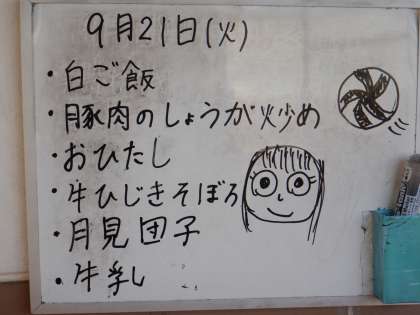 9月21日(火)
・白ご飯
・豚肉のしょうが炒め
・おひたし
・牛ひじきそぼろ
・月見団子
・牛乳